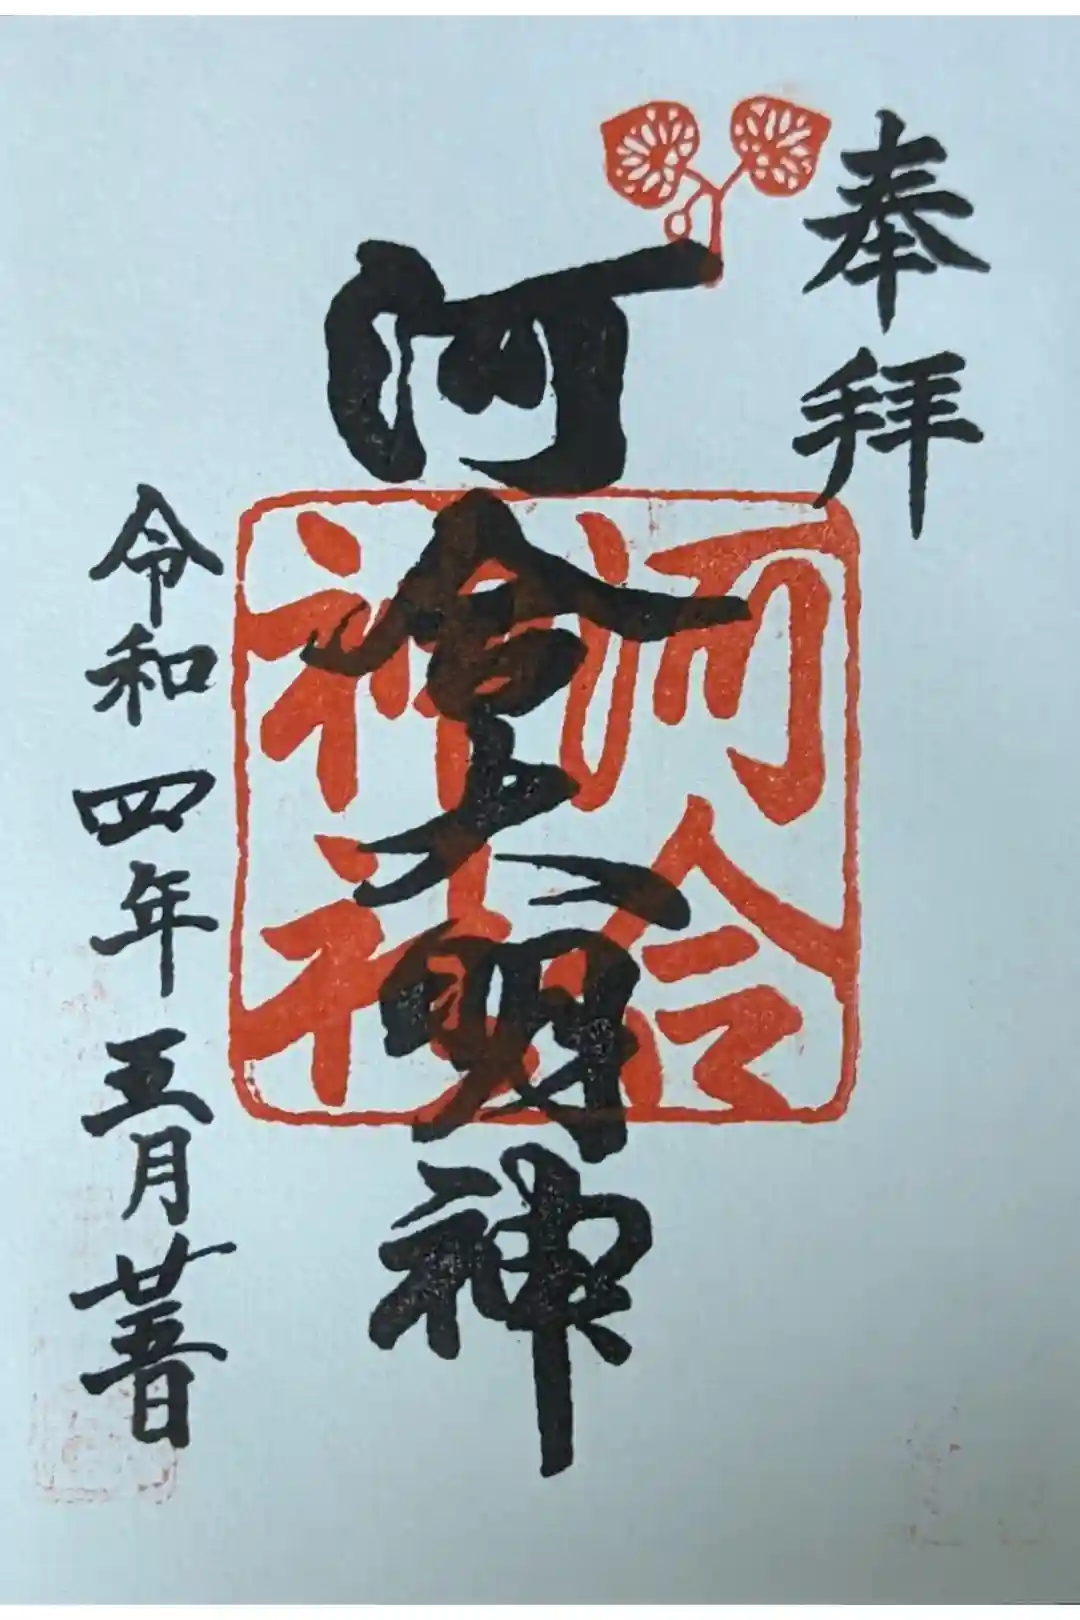 奉拝
河會大明神
河合
神社
令和四年五月廿五日